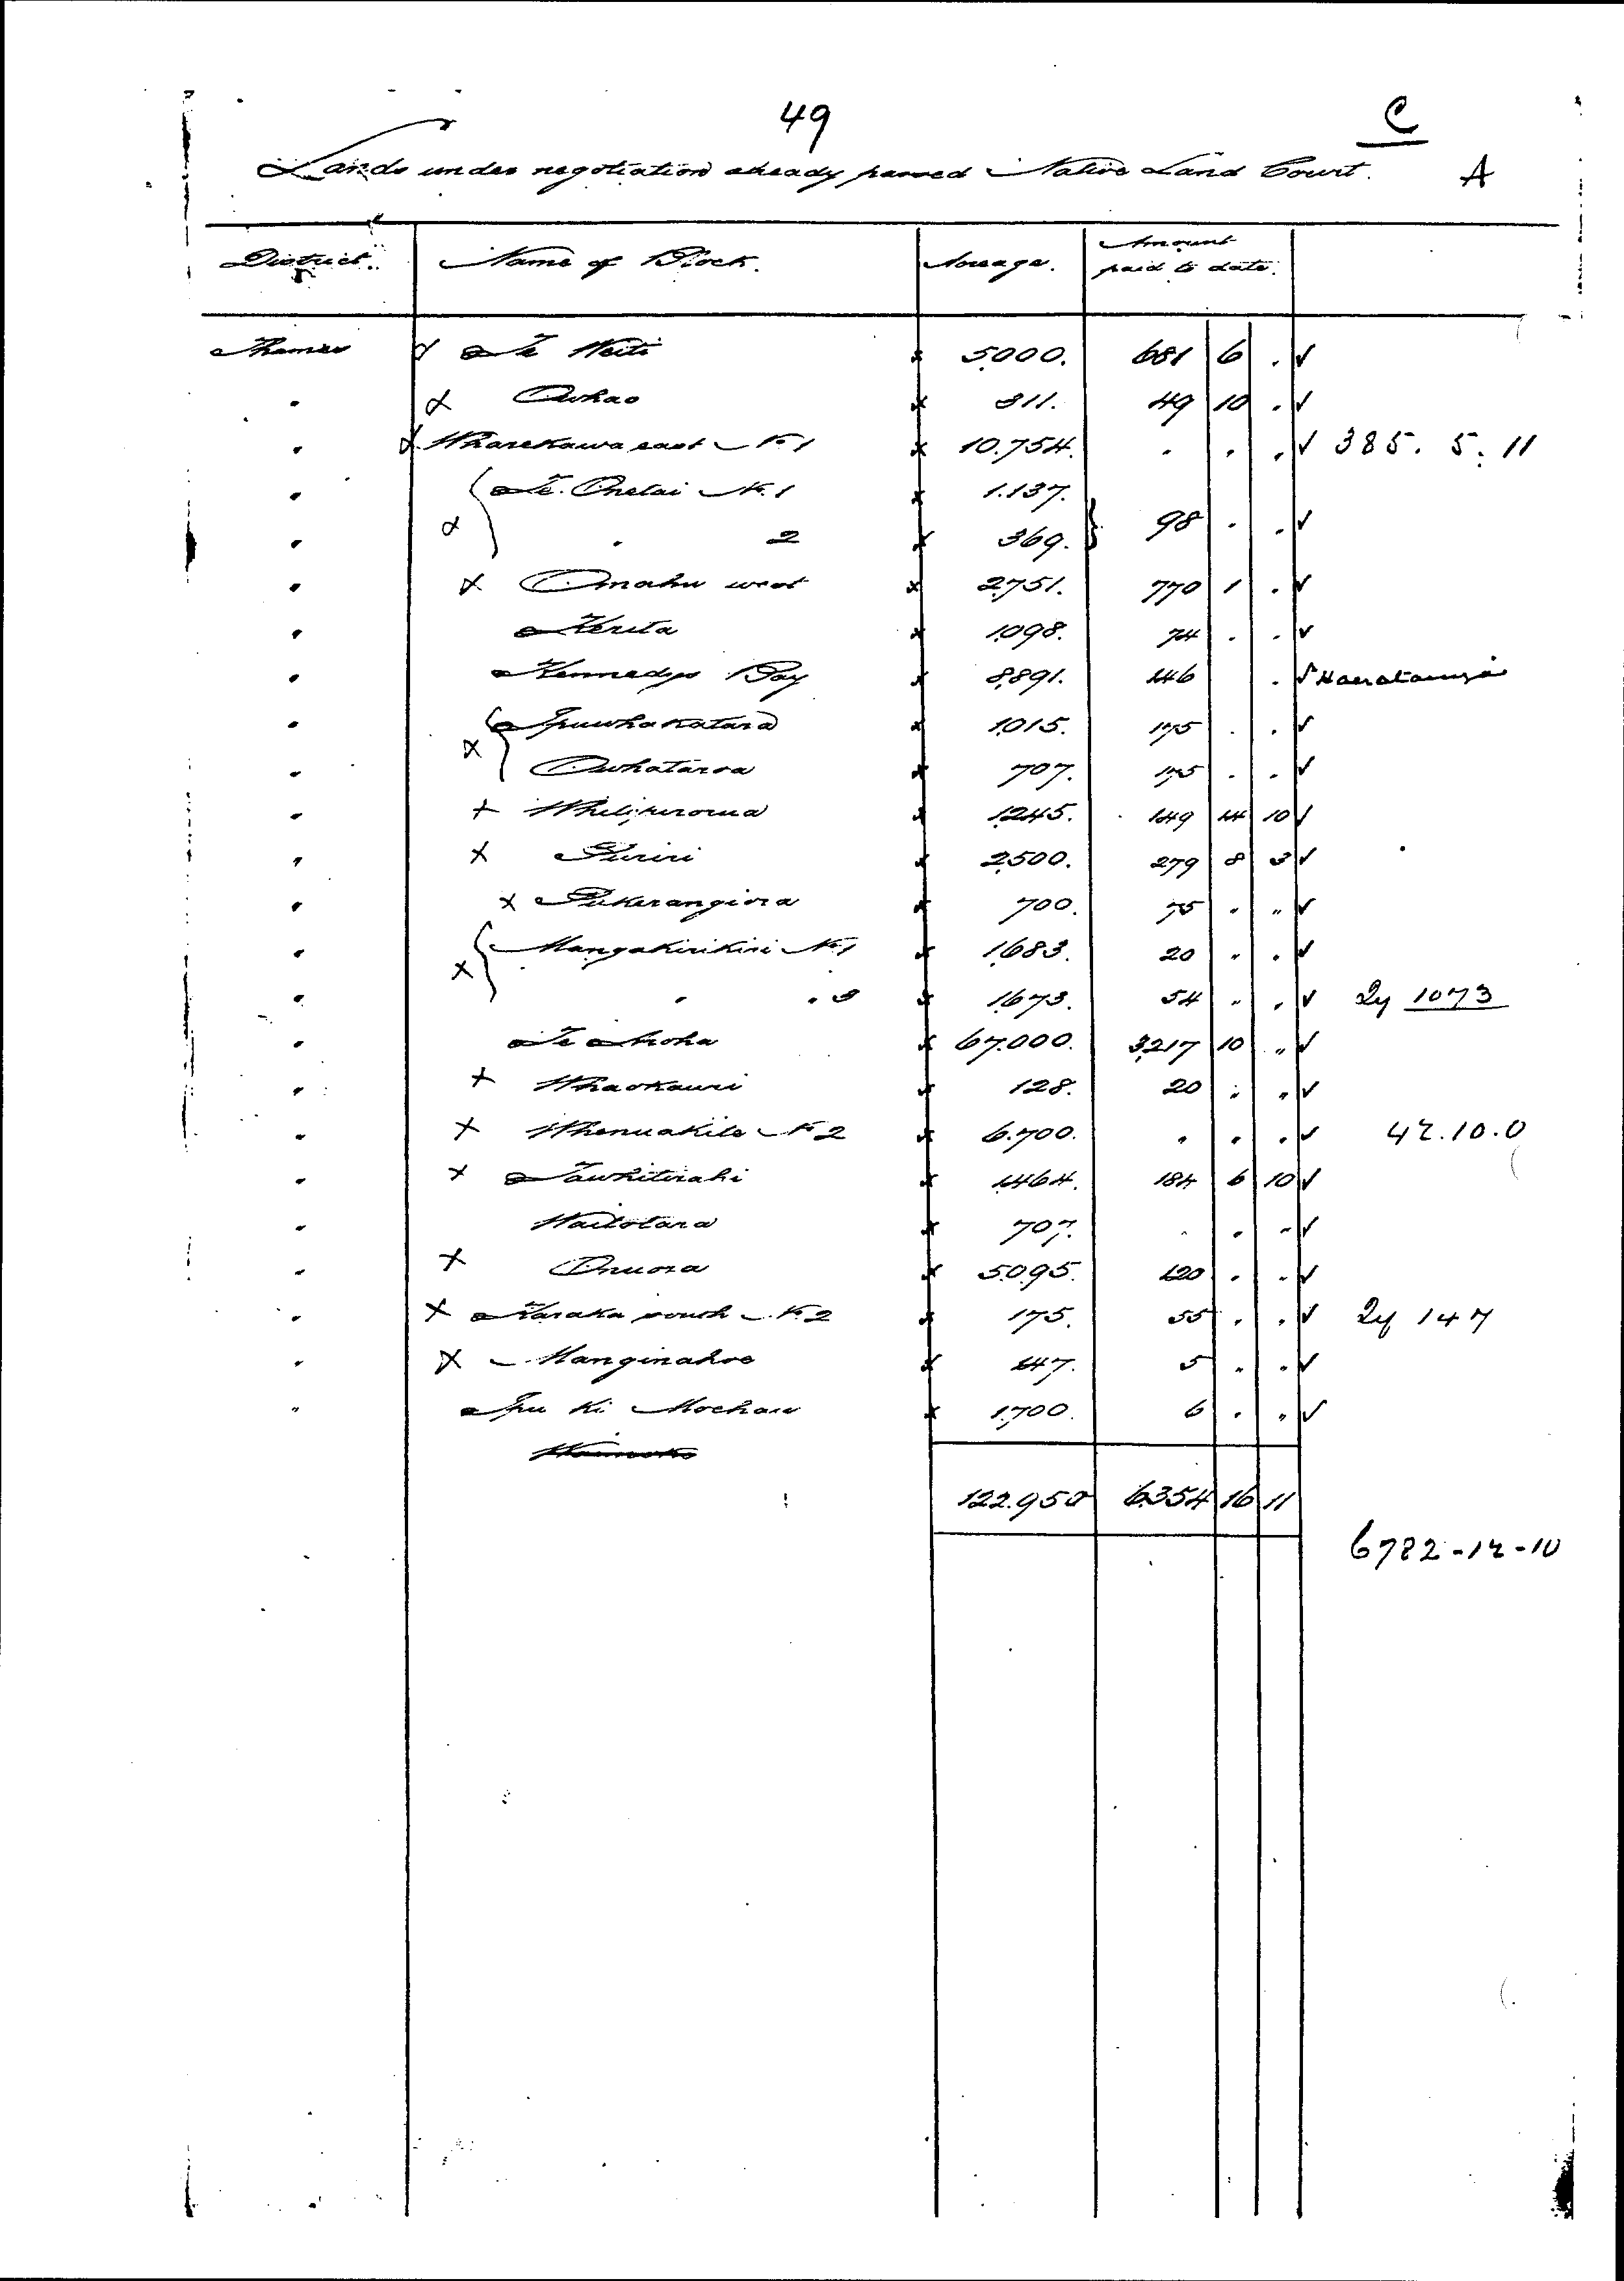 49
C
Lands under negotiation already passed Native Land Court. A
District. Name of Block. Acreage. Amount paid to date.
Thames Te Weiti 5,000. 681 6 . ✓
" Owhao 311. 49 10 . ✓
" Wharekawa east No. 1 10.754. . . . ✓ 385. 5. 11
" Te Onetai No. 1 1.137.
" " 2 369. } 98 . . ✓
" Omahu west 2,751. 770 1 . ✓
" Kerita 1,098. 74 . . ✓
" Kennedys Bay 8,891. 146 . ✓ Harataunga
" Ipuwhakatara 1,015. 175 . . ✓
" Owhataroa 707. 175 . . ✓
" Whitipirorua 1,245. 149 14 10 ✓
" Puriri 2,500. 279 8 3 ✓
" Pukerangiora 700. 75 " " ✓
" Mangakirikiri No. 1 1,683. 20 " . ✓
" " " 3 1,673. 54 " . ✓ Qy 1073
" Te Aroha 67.000. 3,217 10 " ✓
" Whaokauri 128. 20 . " ✓
" Whenuakite No. 2 6.700. " . . ✓ 42.10.0
" Tawhitirahi 1,464. 184 6 10 ✓
" Waitotara 707. . . " ✓
" Onuora 5.095. 120 . . ✓
" Karaka south No. 2 175. 55 . . ✓ Qy 147
" Manginahoe 147. 5 " . ✓
" Ipu ki Moehau 1,700. 6 . " ✓
122.950 6,354 16 11
6782-12-10